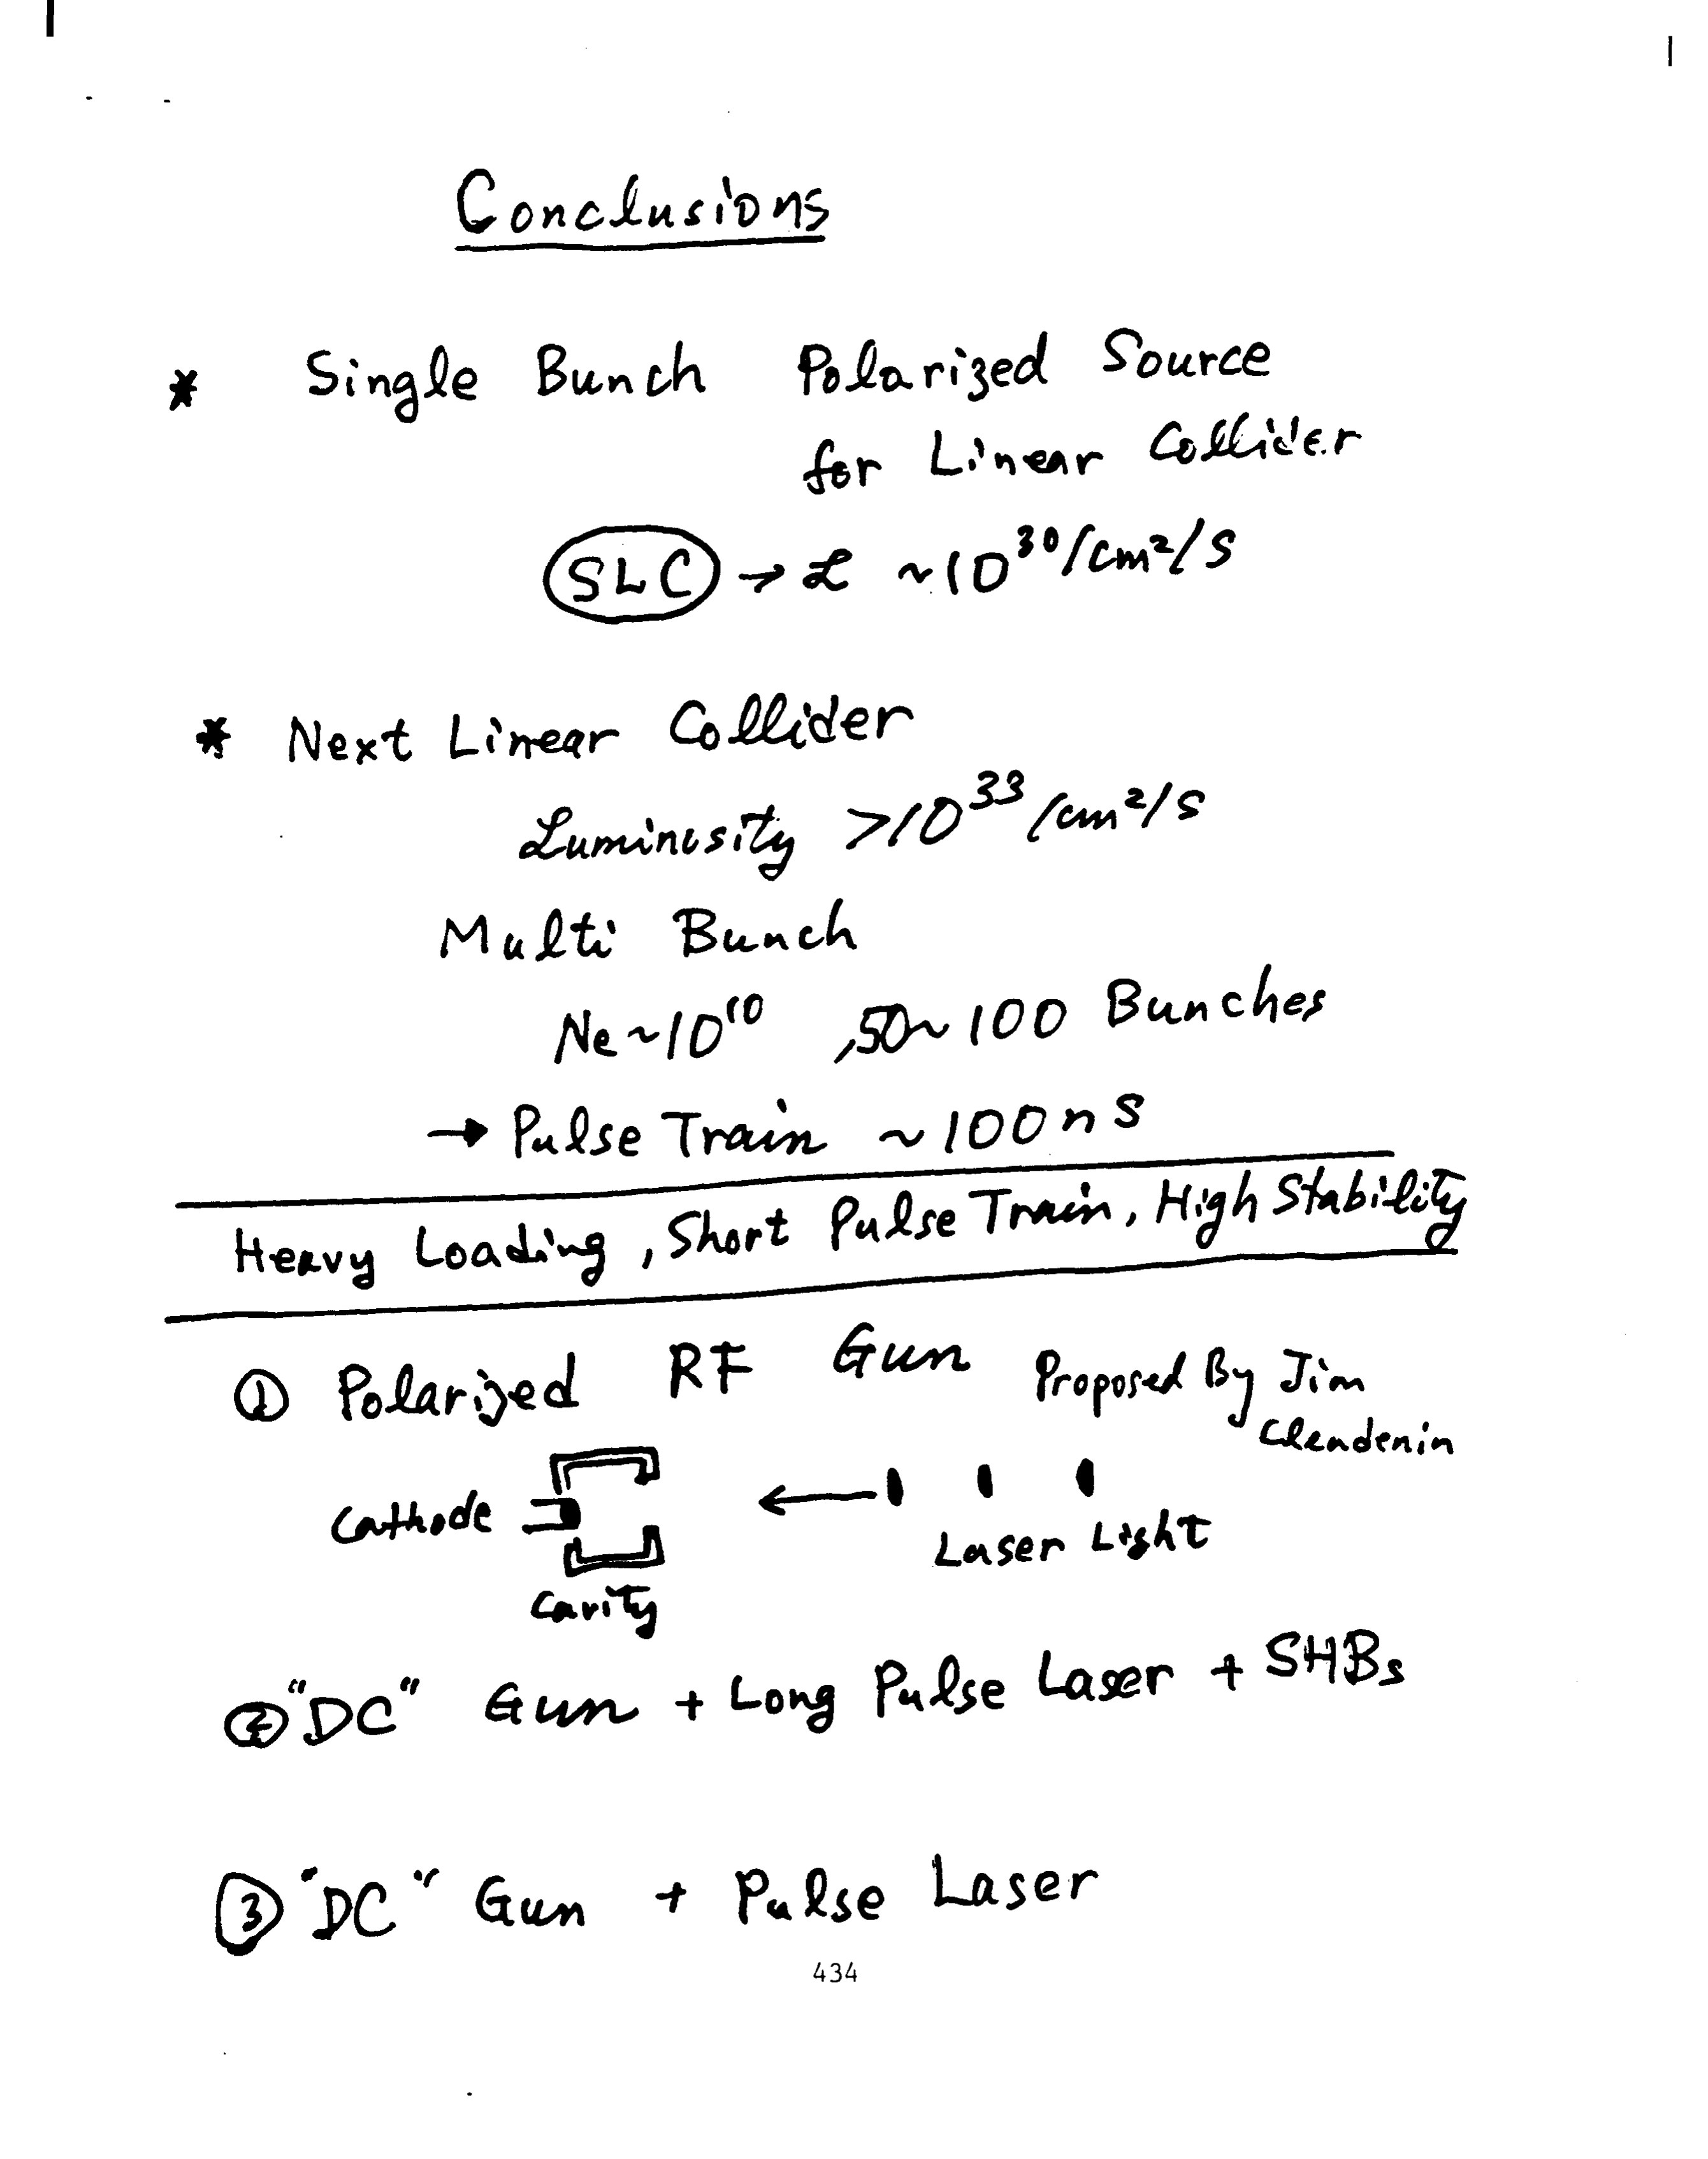 Conclusions
* Single Bunch Polarized Source
for Linear Collider
SLC → ℒ ~10³⁰/cm²/s
* Next Linear Collider
Luminosity >10³³/cm²/s
Multi Bunch
Ne~10¹⁰ ,50~100 Bunches
→ Pulse Train ~100ns
Heavy Loading, Short Pulse Train, High Stability
① Polarized RF Gun Proposed By Jim
Clendenin
Cathode
Laser Light
Cavity
② "DC" Gun + Long Pulse Laser + SHBs
③ "DC" Gun + Pulse Laser
434